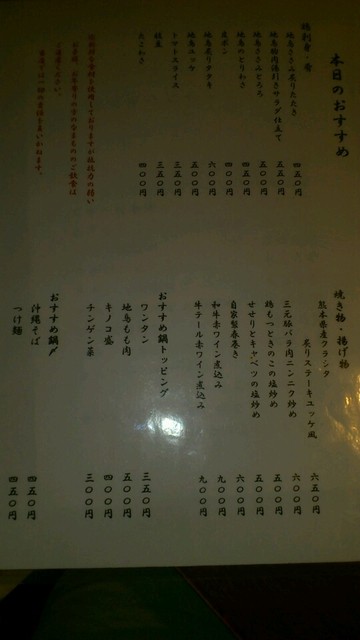 本日のおすすめ
鶏刺身・肴
地鳥ささみ炙りたたき 四五〇円
地鳥胸肉湯引きサラダ仕立て 五五〇円
地鳥ささみとろろ 五〇〇円
地鳥のとりわさ 四五〇円
皮ポン 四〇〇円
地鳥炙りヅケ 六〇〇円
地鳥ユッケ 五五〇円
トマトスライス 三五〇円
枝豆 三五〇円
たこわさ 四〇〇円
ご遠慮ください。
当店では一切の責任をおいかねます。
焼き物・揚げ物
熊本県産クラシタ
炙りステーキユッケ風 六五〇円
三元豚バラ肉ニンニク炒め 六〇〇円
鶏もつときのこの塩炒め 五五〇円
せせりとキャベツの塩炒め 五〇〇円
自家製春巻き 六〇〇円
和牛赤ワイン煮込み 九〇〇円
牛テール赤ワイン煮込み 九〇〇円
おすすめ鍋トッピング
ワンタン 三五〇円
地鳥もも肉 五〇〇円
キノコ盛 四〇〇円
チンゲン菜 三〇〇円
おすすめ鍋〆
沖縄そば 四五〇円
つけ麺 四五〇円